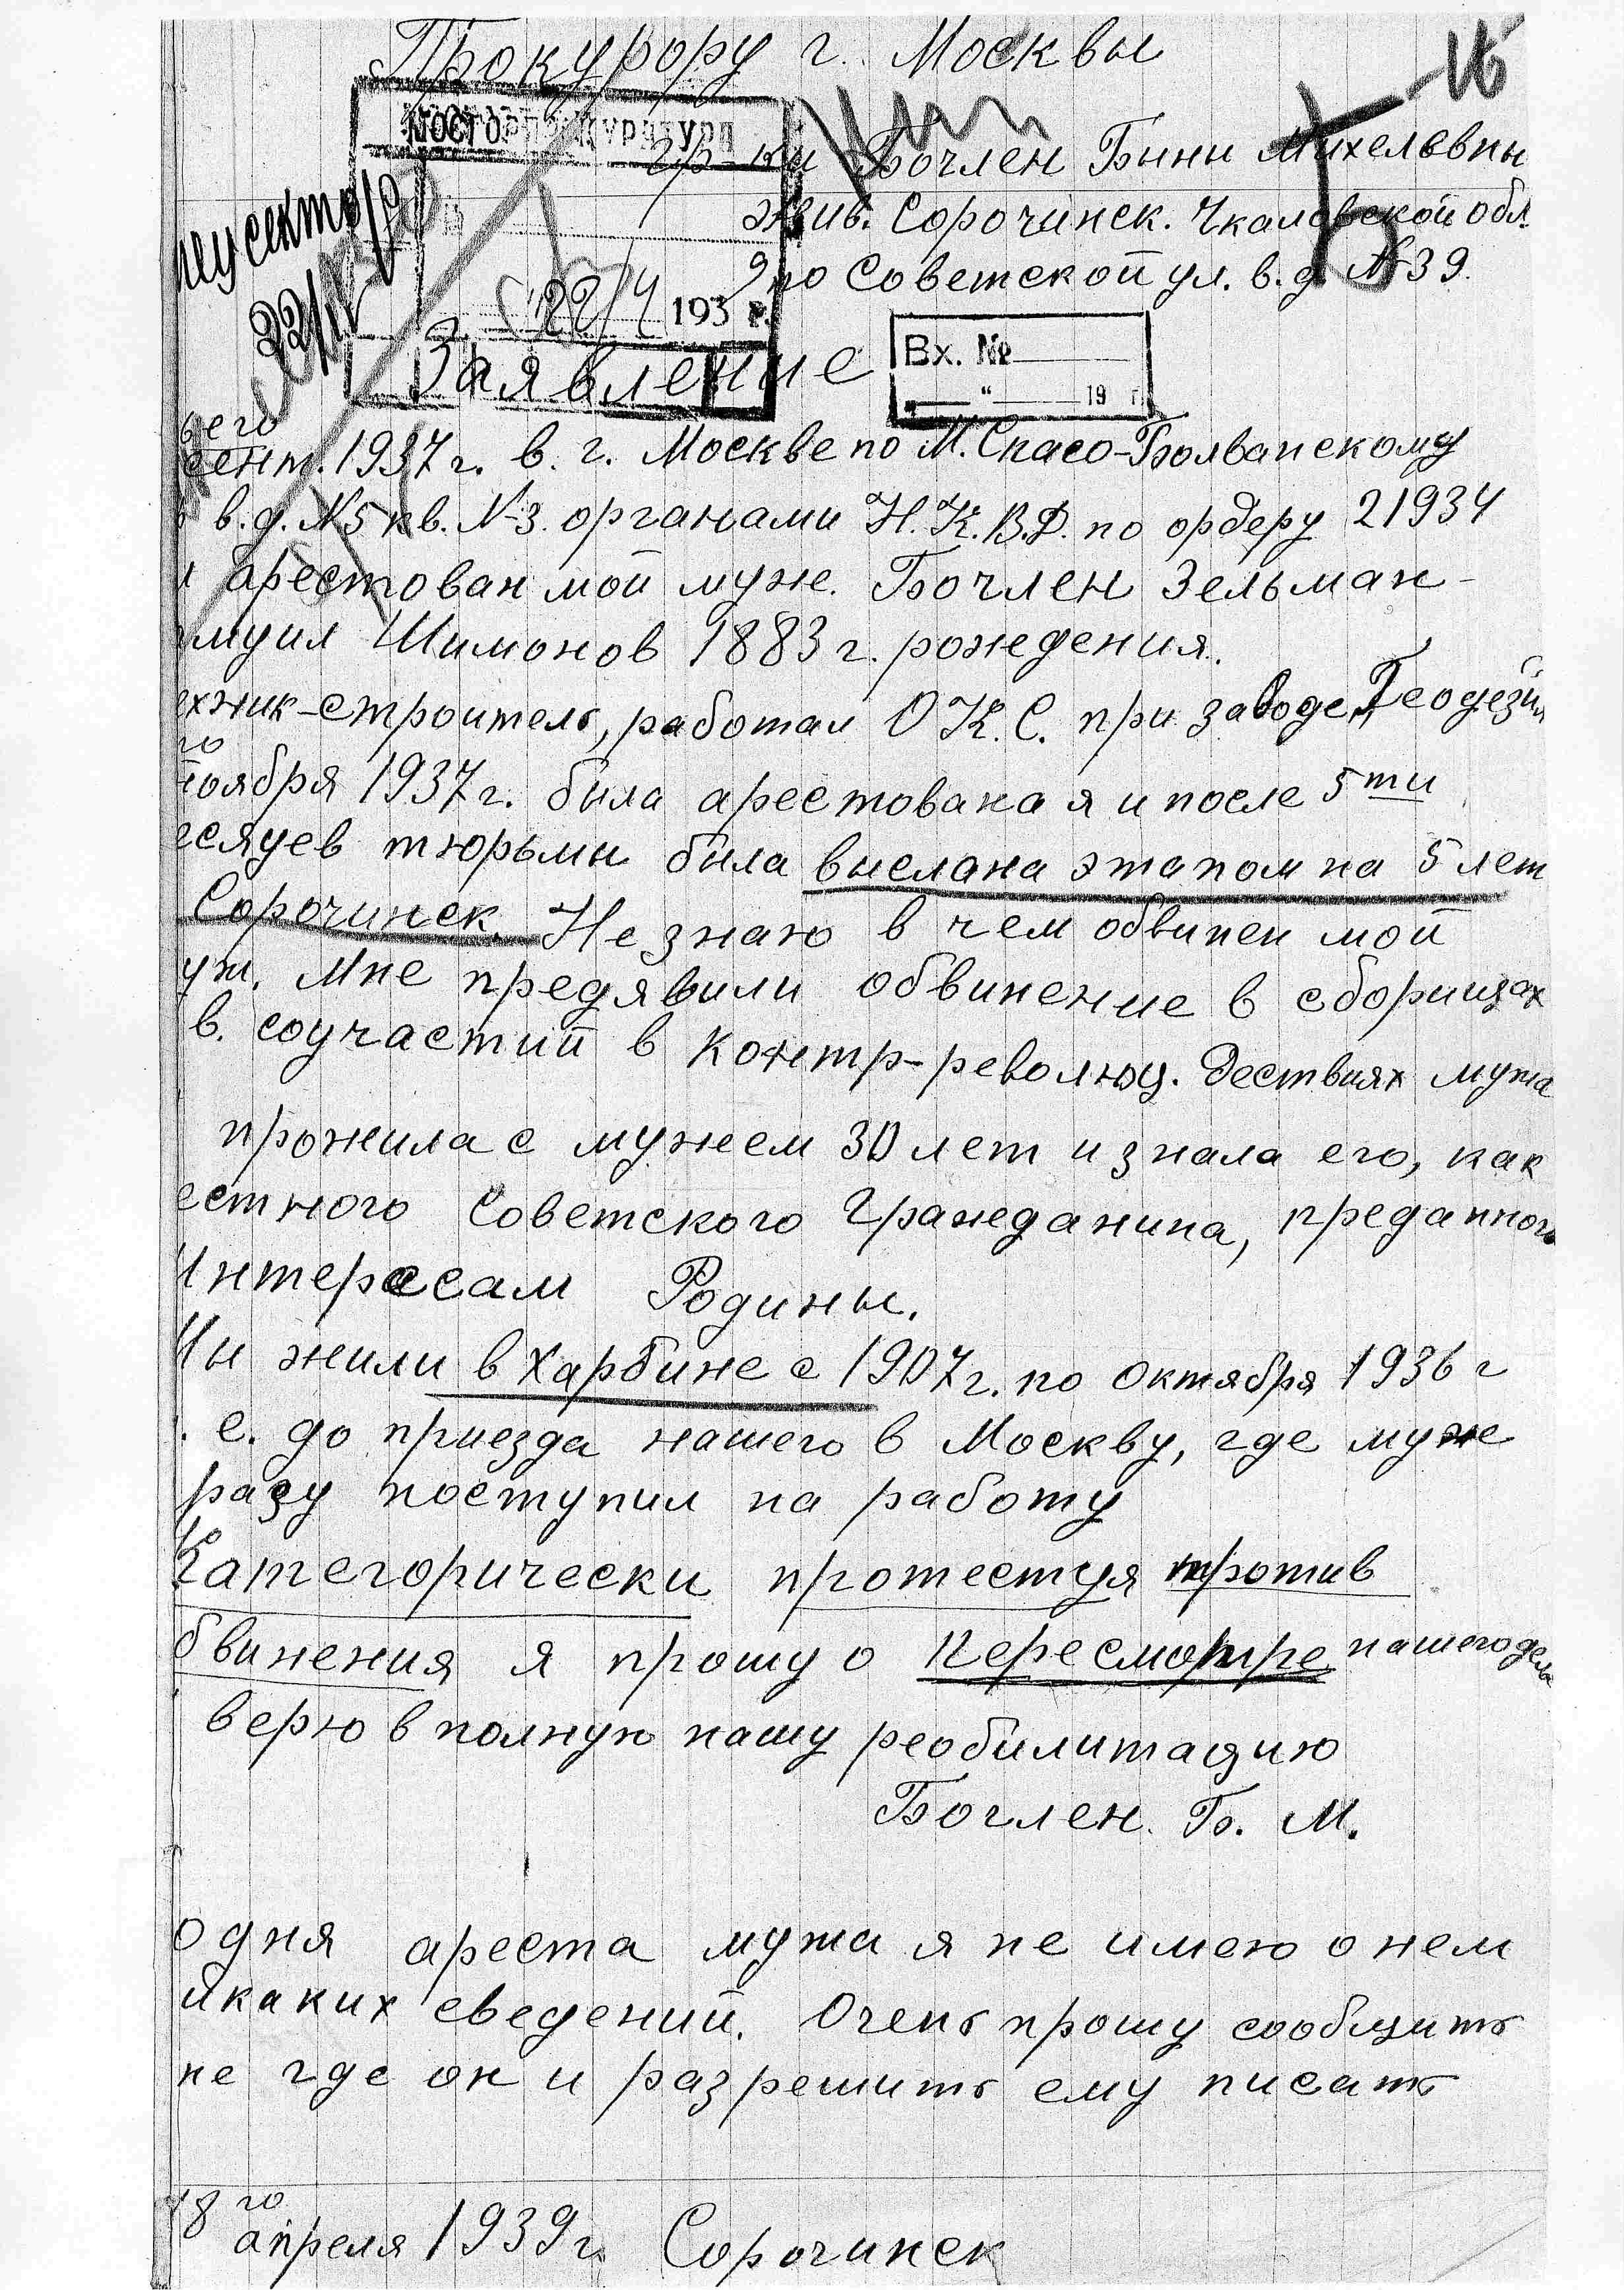 Прокурору г. Москвы
Мосгорпрокуратура
гр-ки Бочлен Бини Михелевны
жив. Сорочинск. Чкаловской обл.
по Советской ул. в. д. №39.
сектор
22/IV
22/4 1939 г.
Заявление
Вх. №
„ “ 19 г.
ьего
сент. 1937 г. в. г. Москве по М. Спасо-Болванскому
в. д. №5 кв. №3. органами Н.К.В.Д. по ордеру 21934
л арестован мой муж. Бочлен Зельман-
муил Шимонов 1883 г. рождения.
ехник-строитель, работал О.К.С. при заводе „Геодезия
го
ноября 1937 г. была арестована я и после 5ти
есяцев тюрьмы была выслана этапом на 5 лет
Сорочинск. Не знаю в чем обвинен мой
уж. Мне предявили обвинение в сборищах
в. соучастий в контр-революц. дествиях мужа
прожила с мужем 30 лет и знала его, как
естного Советского Гражданина, преданного
Интересам Родины.
Мы жили в Харбине с 1907 г. по Октября 1936 г
. е. до приезда нашего в Москву, где муж
разу поступил на работу
Категорически протестуя против
бвинения я прошу о пересмотре нашего дела
верю в полную нашу реобилитацию
Бочлен. Б. М.
о дня ареста мужа я не имею о нем
икаких сведений. Очень прошу сообщить
не где он и разрешить ему писать
18го
апреля 1939 г. Сорочинск